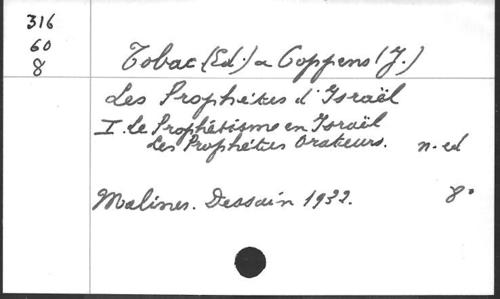 316
60
8
Tobac (Ed.) a Coppens (J.)
Les Prophètes d'Israël
I. le Prophétisme en Israël
Les Prophètes Orateurs. n. ed
Malines. Dessain 1932. 8°